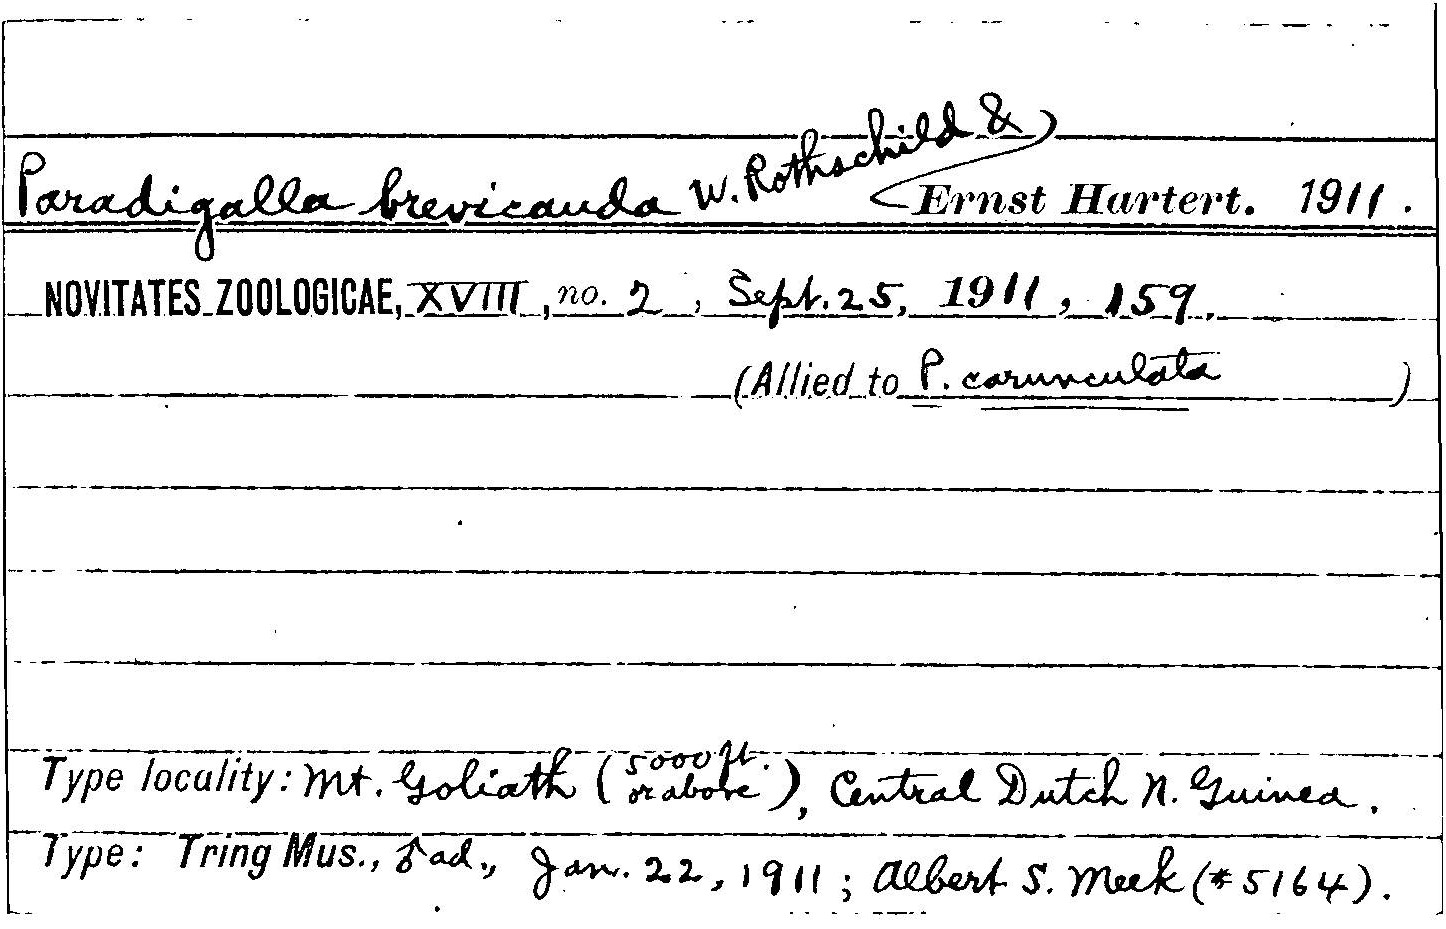 Paradigalla brevicauda W. Rothschild & Ernst Hartert. 1911.
NOVITATES ZOOLOGICAE, XVIII, no. 2, Sept. 25, 1911, 159.
(Allied to P. carunculata )
Type locality: Mt. Goliath (5000 ft. or above), Central Dutch N. Guinea.
Type: Tring Mus., ♂ ad., Jan. 22, 1911; Albert S. Meek (#5164).